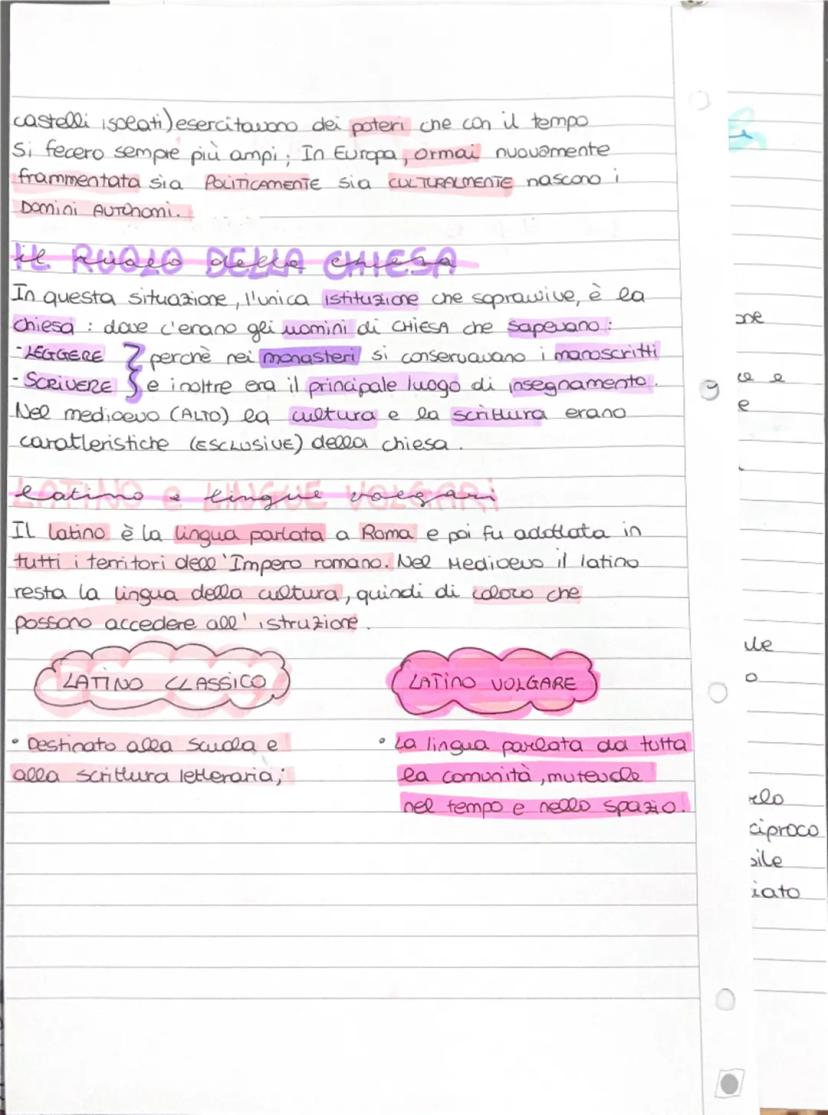 castelli isolati) esercitavano dei poteri che con il tempo
si fecero sempre più ampi; In Europa, ormai nuovamente
frammentata sia POLITICAMENTE sia CULTURALMENTE nascono i
Domini AUTONOMI.
IL RUOLO DELLA CHIESA
il ruolo della chiesa
In questa situazione, l'unica istituzione che sopravvive, è la
chiesa: dove c'erano gli uomini di CHIESA che sapevano:
- LEGGERE } perchè nei monasteri si conservavano i manoscritti
- SCRIVERE } e inoltre era il principale luogo di insegnamento.
Nel medioevo (ALTO) la cultura e la scrittura erano
caratteristiche (ESCLUSIVE) della chiesa.
LATINO e LINGUE VOLGARI
latino e lingue volgari
Il latino è la lingua parlata a Roma e poi fu adottata in
tutti i territori dell'Impero romano. Nel Medioevo il latino
resta la lingua della cultura, quindi di coloro che
possono accedere all'istruzione.
LATINO CLASSICO
• Destinato alla scuola e
alla scrittura letteraria;
LATINO VOLGARE
• La lingua parlata da tutta
la comunità, mutevole
nel tempo e nello spazio.
one
e
e
ule
o
elo
ciproco
sile
iato